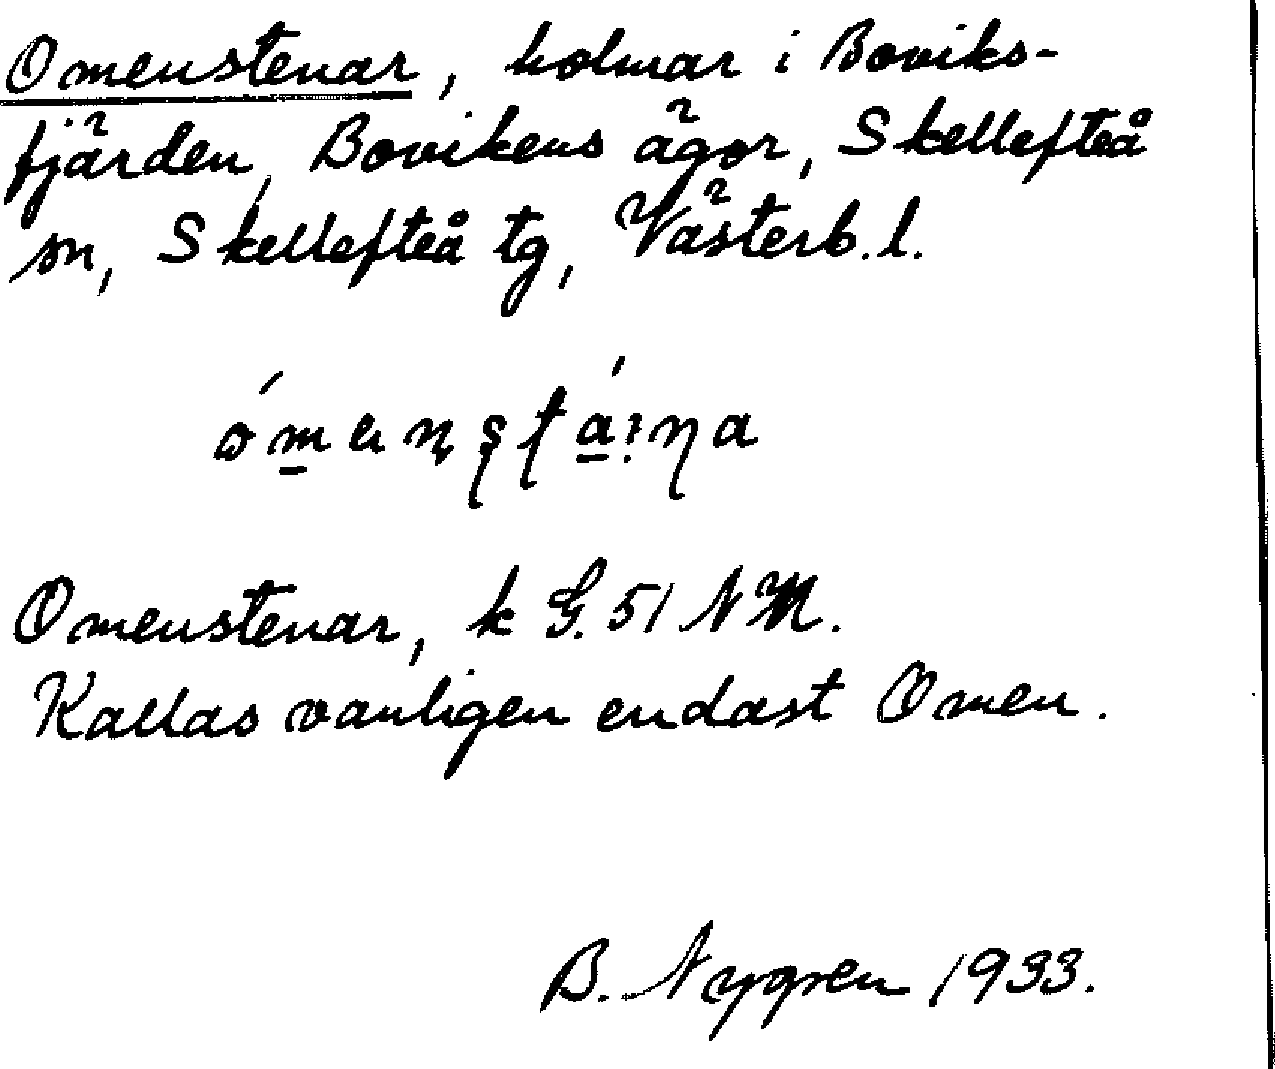 Omenstenar, holmar i Boviks-
fjärden, Bovikens ägor, Skellefteå
sn, Skellefteå tg, Västerb. l.
Omenstenar, k G. 51 NM.
Kallas vanligen endast Omen.
B. Nygren 1933.